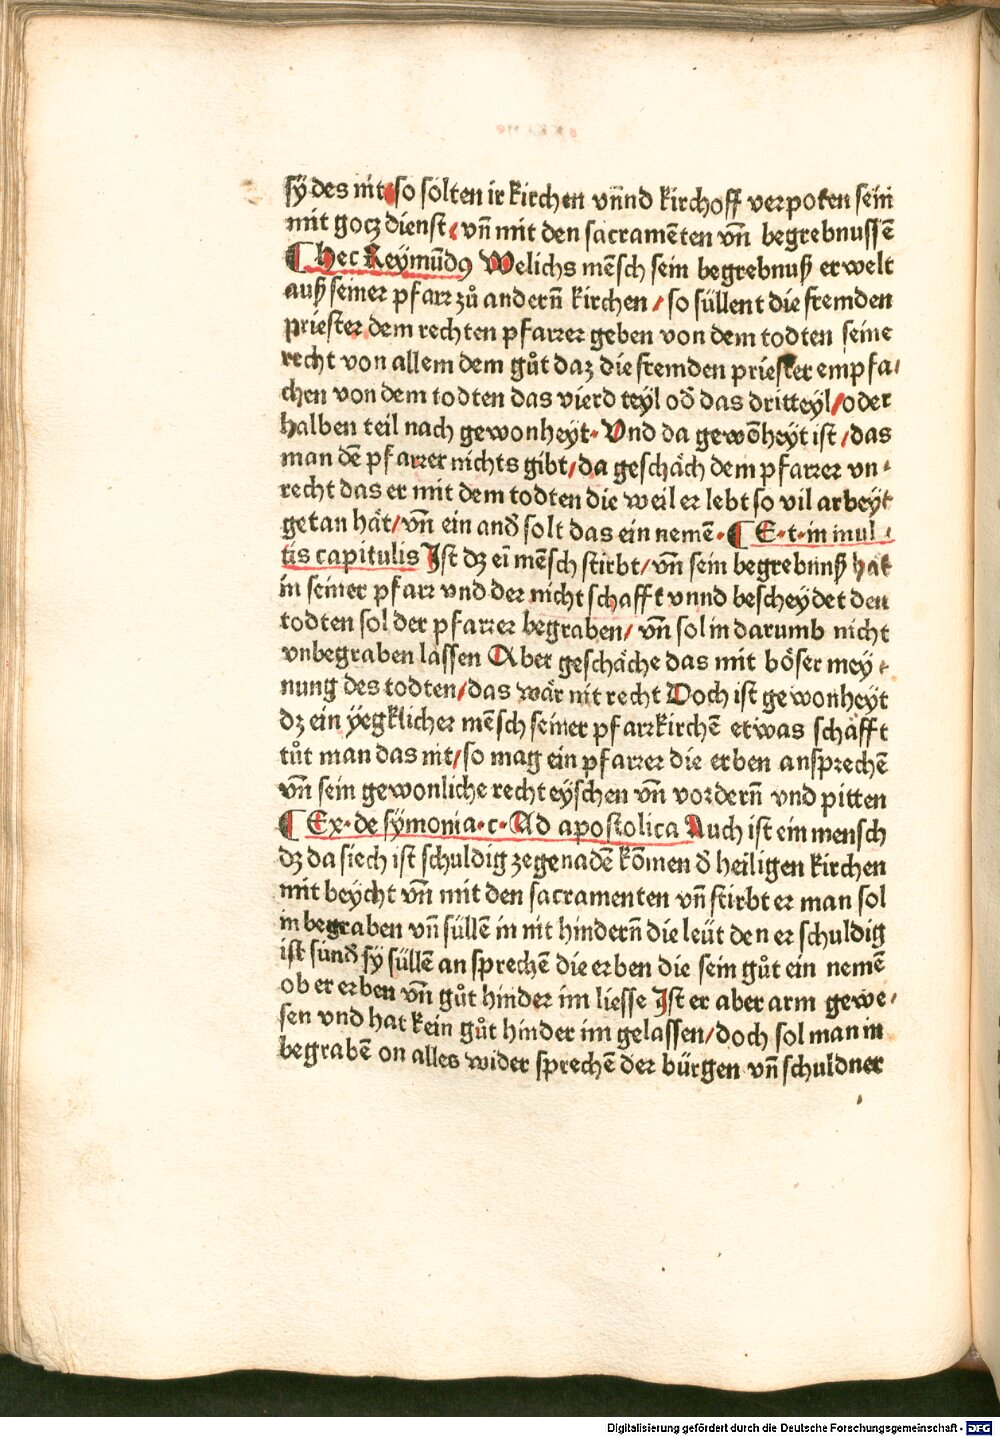 sÿ des nit so sölten ir kirchen vnnd kirchoff verpoten sein
mit gocz dienst / vn̄ mit den sacramēten vn̄ begrebnussē
¶ Hec Reÿmūdꝯ Welichs mēsch sein begrebnuß erwelt
auß seiner pfarr zů andern̄ kirchen / so süllent die fremden
priester dem rechten pfarrer geben von dem todten seine
recht von allem dem gůt daz die fremden priester empfa⸗
chen von dem todten das vierd teÿl od̄ das dritteÿl / oder
halben teil nach gewonheÿt. Vnd da gewōheÿt ist / das
man dē pfarrer nichts gibt / da geschäch dem pfarrer vn⸗
recht das er mit dem todten die weil er lebt so vil arbeÿt
getan hät / vn̄ ein and̄ solt das ein nemē. ¶ E. t. in mul⸗
tis capitulis Ist dz eī mēsch stirbt / vn̄ sein begrebnuß hat
in seiner pfarr vnd der nicht schafft vnnd bescheÿdet den
todten sol der pfarrer begraben / vn̄ sol in darumb nicht
vnbegraben lassen Aber geschäche das mit böser meÿ⸗
nung des todten / das wär nit recht Doch ist gewonheÿt
dz ein ÿegklicher mēsch seiner pfarrkirchē etwas schäfft
tůt man das nit / so mag ein pfarrer die erben ansprechē
vn̄ sein gewonliche recht eÿschen vn̄ vordern̄ vnd pitten
¶ Ex. de sÿmonia. c. Ad apostolica Auch ist ein mensch
dz da siech ist schuldig ze genadē kōmen d̄ heiligen kirchen
mit beÿcht vn̄ mit den sacramenten vn̄ stirbt er man sol
in begraben vn̄ süllē in nit hindern̄ die leüt den er schuldig
ist sund̄ sÿ süllē an sprechē die erben die sein gůt ein nemē
ob er erben vn̄ gůt hinder im liesse Ist er aber arm gewe⸗
sen vnd hat kein gůt hinder im gelassen / doch sol man in
begrabē on alles wider sprechē der bürgen vn̄ schuldner
Digitalisierung gefördert durch die Deutsche Forschungsgemeinschaft - DFG